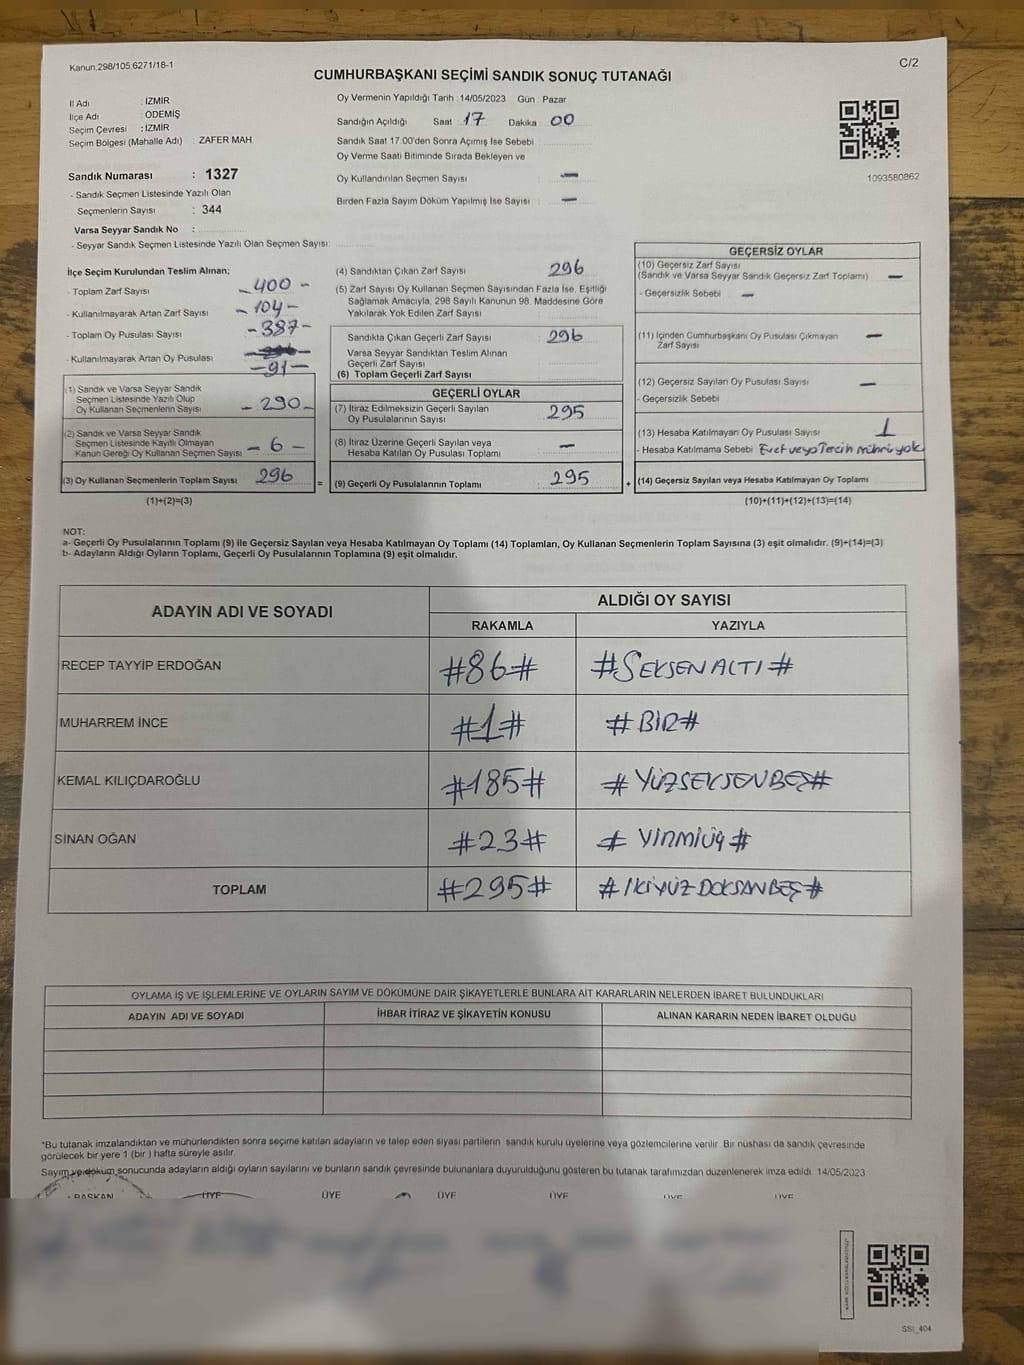 Kanun;298/105;6271/18-1
C/2
CUMHURBAŞKANI SEÇİMİ SANDIK SONUÇ TUTANAĞI
İl Adı : İZMİR
İlçe Adı : ÖDEMİŞ
Seçim Çevresi : İZMİR
Seçim Bölgesi (Mahalle Adı) : ZAFER MAH.
Oy Vermenin Yapıldığı Tarih : 14/05/2023 Gün : Pazar
Sandığın Açıldığı Saat : 17 Dakika : 00
Sandık Saat 17.00'den Sonra Açımış İse Sebebi
Oy Verme Saati Bitiminde Sırada Bekleyen ve
Oy Kullandırılan Seçmen Sayısı : —
Birden Fazla Sayım Döküm Yapılmış İse Sayısı : —
1093580862
Sandık Numarası : 1327
- Sandık Seçmen Listesinde Yazılı Olan
Seçmenlerin Sayısı : 344
Varsa Seyyar Sandık No :
- Seyyar Sandık Seçmen Listesinde Yazılı Olan Seçmen Sayısı:
İlçe Seçim Kurulundan Teslim Alınan;
- Toplam Zarf Sayısı - 400 -
- Kullanılmayarak Artan Zarf Sayısı - 104 -
- Toplam Oy Pusulası Sayısı - 387 -
- Kullanılmayarak Artan Oy Pusulası
- 91 -
(1) Sandık ve Varsa Seyyar Sandık
Seçmen Listesinde Yazılı Olup
Oy Kullanan Seçmenlerin Sayısı - 290 -
(2) Sandık ve Varsa Seyyar Sandık
Seçmen Listesinde Kayıtlı Olmayan
Kanun Gereği Oy Kullanan Seçmen Sayısı - 6 -
(3) Oy Kullanan Seçmenlerin Toplam Sayısı 296
(1)+(2)=(3)
(4) Sandıktan Çıkan Zarf Sayısı 296
(5) Zarf Sayısı Oy Kullanan Seçmen Sayısından Fazla İse, Eşitliği
Sağlamak Amacıyla, 298 Sayılı Kanunun 98. Maddesine Göre
Yakılarak Yok Edilen Zarf Sayısı
Sandıkta Çıkan Geçerli Zarf Sayısı 296
Varsa Seyyar Sandıktan Teslim Alınan
Geçerli Zarf Sayısı
(6) Toplam Geçerli Zarf Sayısı
GEÇERLİ OYLAR
(7) İtiraz Edilmeksizin Geçerli Sayılan
Oy Pusulalarının Sayısı 295
(8) İtiraz Üzerine Geçerli Sayılan veya
Hesaba Katılan Oy Pusulası Toplamı —
= (9) Geçerli Oy Pusulalarının Toplamı 295 +
GEÇERSİZ OYLAR
(10) Geçersiz Zarf Sayısı
(Sandık ve Varsa Seyyar Sandık Geçersiz Zarf Toplamı) —
- Geçersizlik Sebebi —
(11) İçinden Cumhurbaşkanı Oy Pusulası Çıkmayan
Zarf Sayısı —
(12) Geçersiz Sayılan Oy Pusulası Sayısı —
- Geçersizlik Sebebi
(13) Hesaba Katılmayan Oy Pusulası Sayısı 1
- Hesaba Katılmama Sebebi Evet veya Tercih mührü yok
(14) Geçersiz Sayılan veya Hesaba Katılmayan Oy Toplamı
(10)+(11)+(12)+(13)=(14)
NOT:
a- Geçerli Oy Pusulalarının Toplamı (9) ile Geçersiz Sayılan veya Hesaba Katılmayan Oy Toplamı (14) Toplamları, Oy Kullanan Seçmenlerin Toplam Sayısına (3) eşit olmalıdır. (9)+(14)=(3)
b- Adayların Aldığı Oyların Toplamı, Geçerli Oy Pusulalarının Toplamına (9) eşit olmalıdır.
ADAYIN ADI VE SOYADI
ALDIĞI OY SAYISI
RAKAMLA YAZIYLA
RECEP TAYYİP ERDOĞAN #86# #SEKSENALTI#
MUHARREM İNCE #1# #BİR#
KEMAL KILIÇDAROĞLU #185# #YÜZSEKSENBEŞ#
SİNAN OĞAN #23# # YİRMİÜÇ #
TOPLAM #295# #İKİYÜZDOKSANBEŞ#
OYLAMA İŞ VE İŞLEMLERİNE VE OYLARIN SAYIM VE DÖKÜMÜNE DAİR ŞİKAYETLERLE BUNLARA AİT KARARLARIN NELERDEN İBARET BULUNDUKLARI
ADAYIN ADI VE SOYADI İHBAR İTİRAZ VE ŞİKAYETİN KONUSU ALINAN KARARIN NEDEN İBARET OLDUĞU
*Bu tutanak imzalandıktan ve mühürlendikten sonra seçime katılan adayların ve talep eden siyasi partilerin sandık kurulu üyelerine veya gözlemcilerine verilir. Bir nüshası da sandık çevresinde
görülecek bir yere 1 (bir) hafta süreyle asılır.
Sayım ve döküm sonucunda adayların aldığı oyların sayılarını ve bunların sandık çevresinde bulunanlara duyurulduğunu gösteren bu tutanak tarafımızdan düzenlenerek imza edildi. 14/05/2023
BAŞKAN ÜYE ÜYE ÜYE ÜYE ÜYE ÜYE
SSI_404